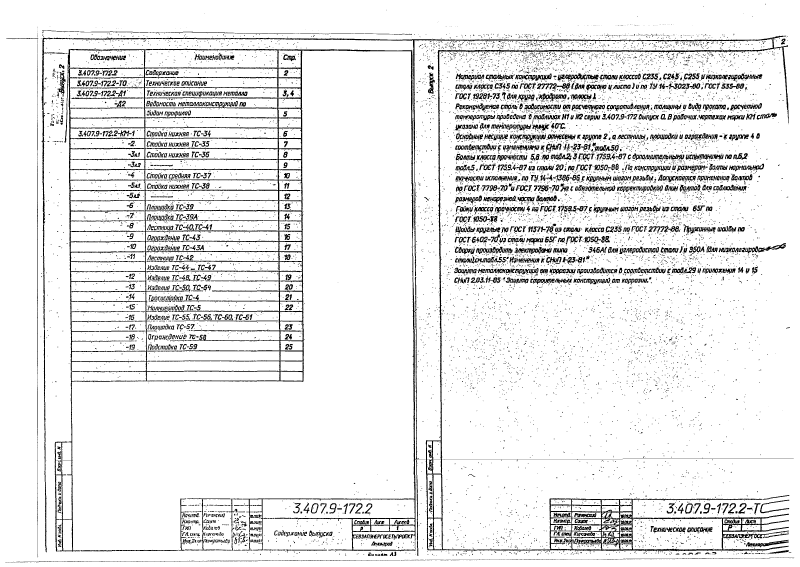 Выпуск 2
Обозначение Наименование Стр.
3.407.9-172.2 Содержание 2
3.407.9-172.2-ТО Техническое описание
3.407.9-172.2-Д1 Техническая спецификация металла 3, 4
-Д2 Ведомость металлоконструкций по
видам профилей 5
3.407.9-172.2-КМ-1 Стойка нижняя ТС-34 6
-2 Стойка нижняя ТС-35 7
-3л1 Стойка нижняя ТС-36 8
-3л2 9
-4 Стойка средняя ТС-37 10
-5л1 Стойка нижняя ТС-38 11
-5л2 12
-6 Площадка ТС-39 13
-7 Площадка ТС-39А 14
-8 Лестница ТС-40, ТС-41 15
-9 Ограждение ТС-43 16
-10 Ограждение ТС-43А 17
-11 Лестница ТС-42 18
Изделие ТС-44 ... ТС-47
-12 Изделие ТС-48, ТС-49 19
-13 Изделие ТС-50, ТС-64 20
-14 Тросостойка ТС-4 21
-15 Молниеотвод ТС-5 22
-16 Изделие ТС-55, ТС-56, ТС-60, ТС-61
-17 Площадка ТС-57 23
-18 Ограждение ТС-58 24
-19 Подставка ТС-59 25
3.407.9-172.2
Содержание выпуска
Стадия Лист Листов
Р 1
СЕВЗАПЭНЕРГОСЕТЬПРОЕКТ
Ленинград
Формат А3
2
Выпуск 2
Материал стальных конструкций - углеродистые стали классов С235, С245, С255 и низколегированные
стали класса С345 по ГОСТ 27772-88 (для фасона и листа) и по ТУ 14-1-3023-80, ГОСТ 535-88,
ГОСТ 19281-73 для круга, квадрата, полосы).
Рекомендуемая сталь в зависимости от расчетного сопротивления, толщины и вида проката, расчетной
температуры приведена в таблицах Н1 и Н2 серии 3.407.9-172 выпуск 0. В рабочих чертежах марки КМ сталь
указана для температуры минус 40°С.
Основные несущие конструкции отнесены к группе 2, а лестницы, площадки и ограждения - к группе 4 в
соответствии с изменениями к СНиП II-23-81* табл.50.
Болты класса прочности 5.8 по табл.2; 3 ГОСТ 1759.4-87 с дополнительными испытаниями по п.6.2
табл.5, ГОСТ 1759.4-87 из стали 20, по ГОСТ 1050-88. По конструкции и размерам- болты нормальной
точности исполнения, по ТУ 14-4-1386-86 с крупным шагом резьбы. Допускается применение болтов
по ГОСТ 7798-70* и ГОСТ 7796-70* но с обязательной корректировкой длин болтов для соблюдения
размеров ненарезной части болтов.
Гайки класса прочности 4 по ГОСТ 1759.5-87 с крупным шагом резьбы из стали по
ГОСТ 1050-88.
Шайбы круглые по ГОСТ 11371-78* из стали класса С235 по ГОСТ 27772-88. Пружинные шайбы по
ГОСТ 6402-70* из стали марки 65Г по ГОСТ 1050-88.
Сварку производить электродами типа Э46А (для углеродистой стали) и Э50А (для низколегированной
стали) см.табл.55* Изменения к СНиП II-23-81*
Защита металлоконструкций от коррозии производится в соответствии с табл.29 и приложения 14 и 15
СНиП 2.03.11-85 "Защита строительных конструкций от коррозии".
3.407.9-172.2-ТО
Техническое описание
Стадия Лист
Р
СЕВЗАПЭНЕРГОСЕТЬПРОЕКТ
Ленинград